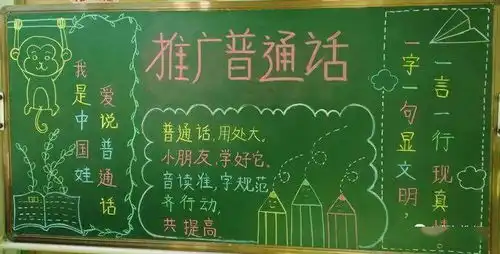 推广普通话
我是中国娃
爱说普通话
普通话,用处大。
小朋友,学好它。
音读准,字规范
齐行动,
共提高。
一字一句显文明,
一言一行现真情。